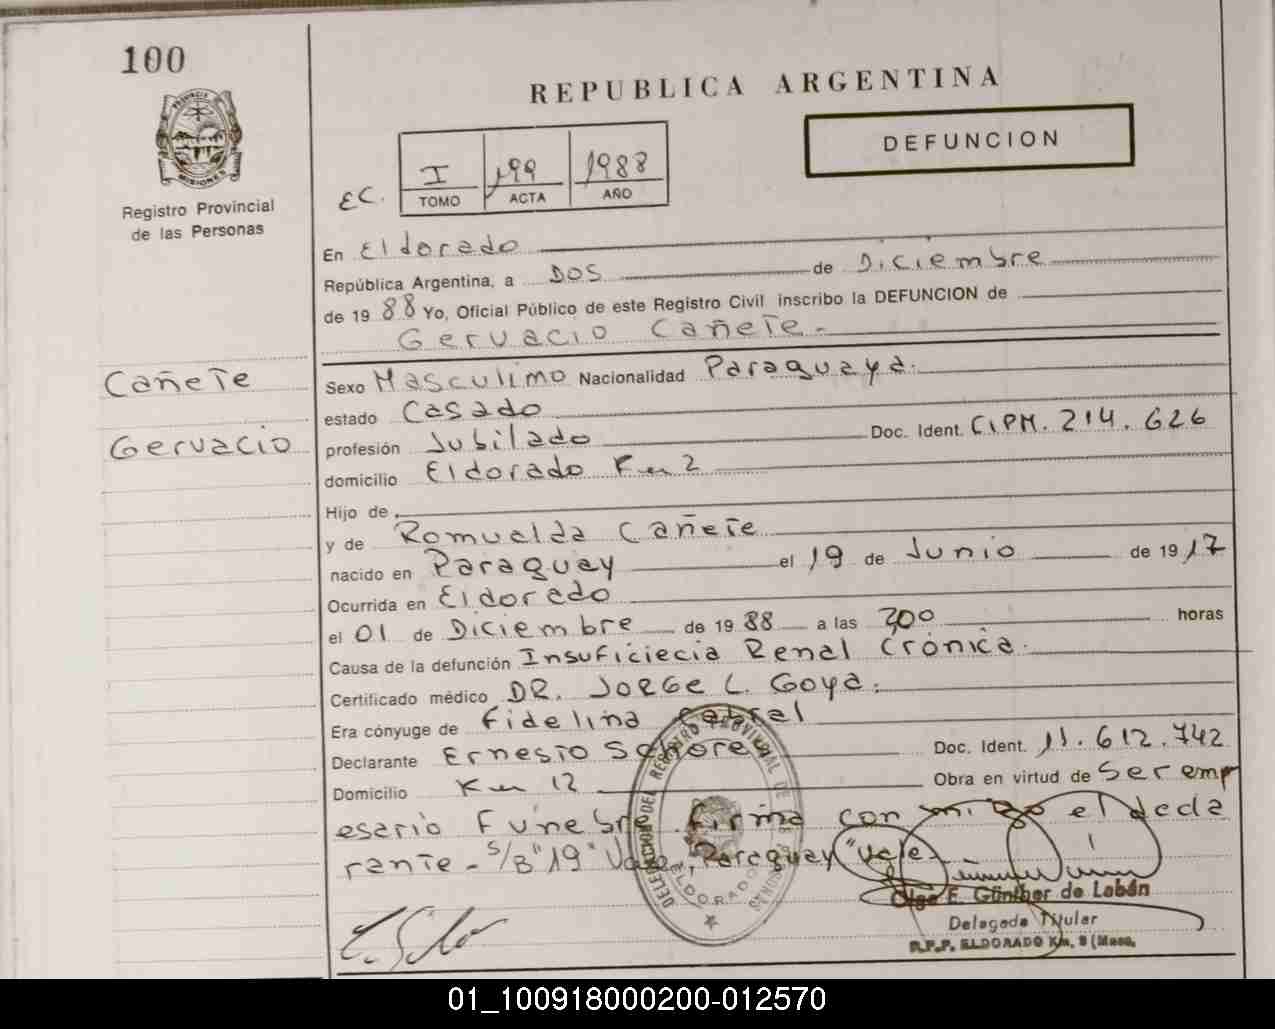 100
REPUBLICA ARGENTINA
DEFUNCION
PROVINCIA DE
MISIONES
Registro Provincial
de las Personas
EC.
I 199 1988
TOMO ACTA AÑO
En Eldorado
República Argentina, a DOS de Diciembre
de 1988 Yo, Oficial Público de este Registro Civil inscribo la DEFUNCION de
Gervacio Cañete.
Cañete
Gervacio
Sexo Masculino Nacionalidad Paraguaya.
estado Casado
profesión Jubilado Doc. Ident. C.I.P.M. 214.626
domicilio Eldorado Km 2
Hijo de
y de Romualda Cañete
nacido en Paraguay el 19 de Junio de 1917
Ocurrida en Eldorado
el 01 de Diciembre de 1988 a las 300 horas
Causa de la defunción Insuficiecia Renal Crónica.
Certificado médico DR. Jorge L. Goya.
Era cónyuge de Fidelina Cabral
Declarante Ernesto Doc. Ident. 11.612.742
Domicilio Km 12 Obra en virtud de Ser emp
esario Fúnebre. firma con migo el decla
rante - S/B "19" Vale, "Paraguay" Vale-
DELEGACION DEL REGISTRO PROVINCIAL DE LAS PERSONAS
ELDORADO
Olga E. Günther de Labán
Delegada Titular
R.P.P. ELDORADO Km. 9 (Mnes.
01_100918000200-012570